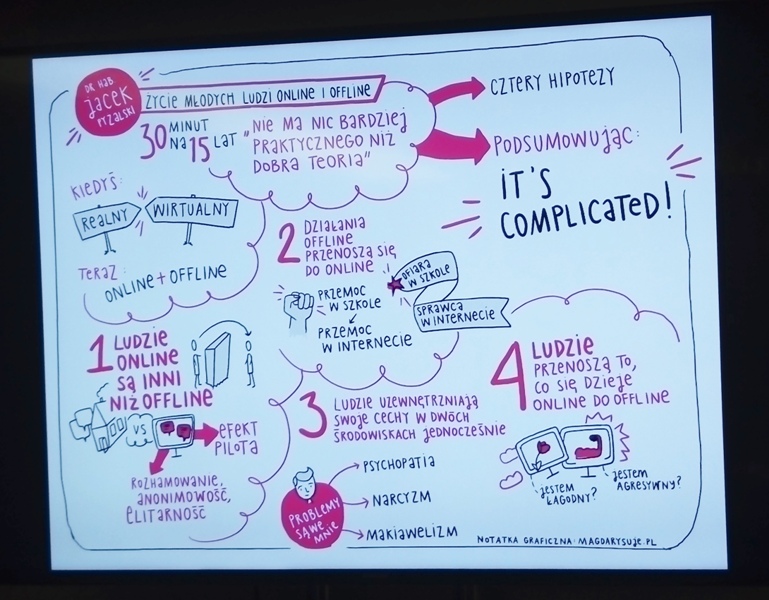 DR HAB
JACEK
PYŻALSKI
ŻYCIE MŁODYCH LUDZI ONLINE I OFFLINE
30 MINUT
NA 15 LAT
„NIE MA NIC BARDZIEJ
PRAKTYCZNEGO NIŻ
DOBRA TEORIA”
CZTERY HIPOTEZY
PODSUMOWUJĄC:
IT'S
COMPLICATED!
KIEDYŚ:
REALNY
WIRTUALNY
TERAZ:
ONLINE + OFFLINE
1 LUDZIE
ONLINE
SĄ INNI
NIŻ OFFLINE
VS
EFEKT
PILOTA
ROZHAMOWANIE,
ANONIMOWOŚĆ,
ELITARNOŚĆ
2 DZIAŁANIA
OFFLINE
PRZENOSZĄ SIĘ
DO ONLINE
PRZEMOC
W SZKOLE
PRZEMOC
W INTERNECIE
OFIARA
W SZKOLE
SPRAWCA
W INTERNECIE
3 LUDZIE UZEWNĘTRZNIAJĄ
SWOJE CECHY W DWÓCH
ŚRODOWISKACH JEDNOCZEŚNIE
PROBLEMY
SĄ WE
MNIE
PSYCHOPATIA
NARCYZM
MAKIAWELIZM
4 LUDZIE
PRZENOSZĄ TO,
CO SIĘ DZIEJE
ONLINE DO OFFLINE
JESTEM
ŁAGODNY?
JESTEM
AGRESYWNY?
NOTATKA GRAFICZNA: MAGDARYSUJE.PL